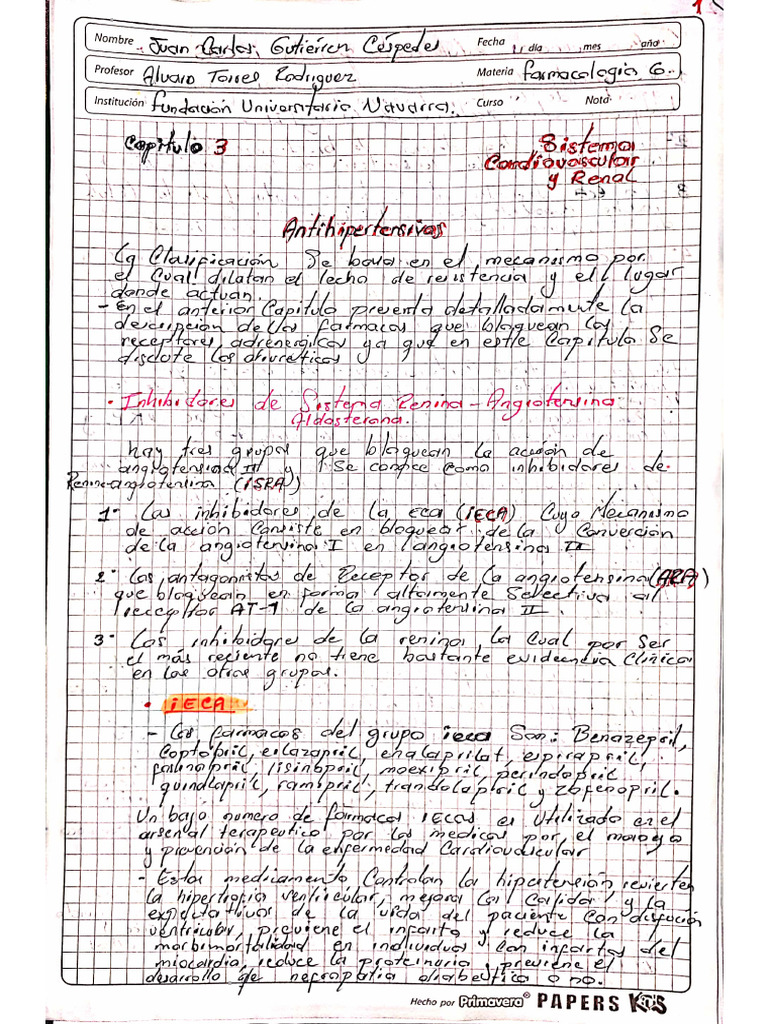 1
Nombre Juan Carlos Gutierrez Céspedes Fecha día mes año
Profesor Alvaro Torres Rodriguez Materia farmacologia 6
Institución Fundación Universitaria Navarra. Curso Nota
Capitulo 3
Sistema
Cardiovascular
y Renal
Antihipertensivos
La Clasificación Se basa en el mecanismo por
el Cual dilatan el lecho de resistencia y el lugar
donde actuan.
- En el anterior Capitulo presenta detalladamente la
descripción de los farmacos que bloquean los
receptores, adrenergicos ya que en este Capitulo Se
discute los diureticos
• Inhibidores de Sistema Renina-Angiotensina
Aldosterona.
hay tres grupos que bloquean la acción de
angiotensina II y Se conoce como inhibidores de
Renina-angiotensina (iSRA)
1- Los inhibidores de la eca (iECA) Cuyo Mecanismo
de acción Consiste en bloquear de la Conversión
de la angiotensina I en l angiotensina II
2- Los antagonistas de Receptor de la angiotensina (ARA)
que bloquean en forma altamente Selectiva al
receptor AT-1 de la angiotensina II.
3- Los inhibidores de la renina la Cual por Ser
el más reciente no tiene bastante evidencia Clinica
en los otros grupos.
• iECA
- Los farmacos del grupo ieca Son: Benazepril,
Coptobril, cilazapril, enalaprilat, espirapril,
fosinopril, lisinopril, moexipril, perindopril
quinalapril, ramipril, trandolapril y zofenopril.
Un bajo numero de farmacos iECAs es utilizado en el
arsenal terapeutico por los medicos por el manejo
y prevención de la enfermedad Cardiovascular
- Estos medicamento Controlan la hipertensión revierten
la hipertrofia ventricular, mejora la Calidad y la
expectativas de la vida del paciente Con disfución
ventricular, previene el infarto y reduce la
morbimortalidad en individuos con infartos del
miocardio, reduce la proteinuria y previene el
desarrollo de nefropatia diabetica o no.
Hecho por Primavera® PAPERS KIDS